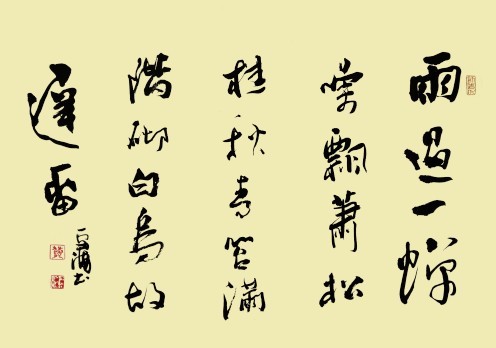 雨過一蟬
噪飄蕭松
桂秋青苔滿
階砌白鳥故
遲留